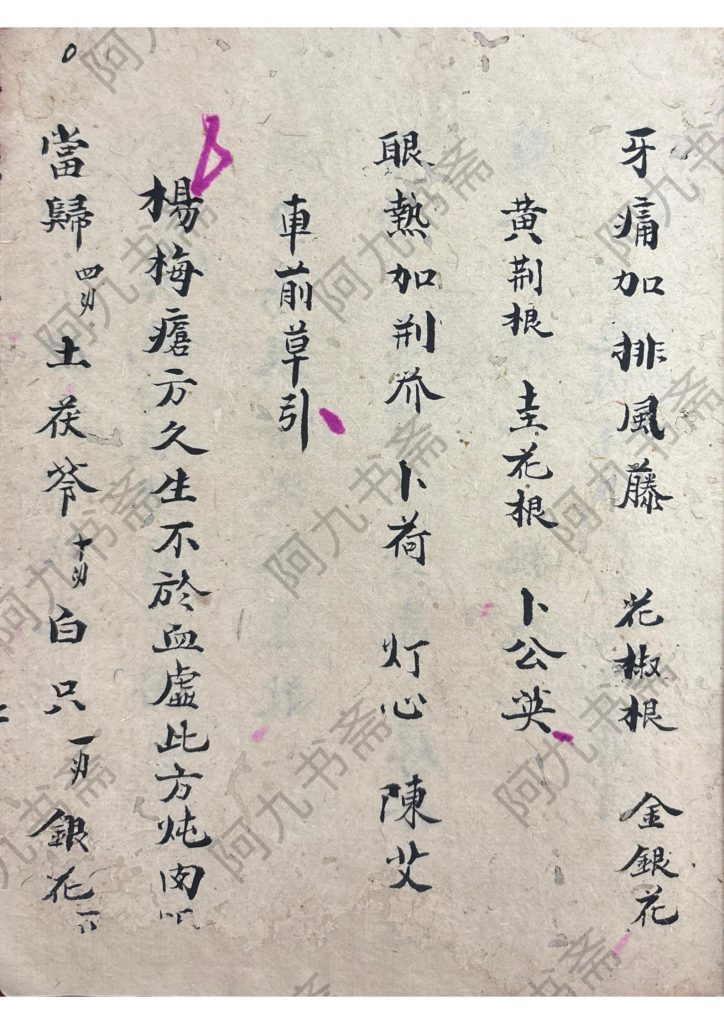 牙痛加排風藤 花椒根 金銀花
黄荆根 圭花根 卜公英
眼熱加荆芥 卜荷 灯心 陳艾
車前草引
楊梅瘡方久生不於血虛此方炖肉
當歸四刄 土茯苓十刄 白只一刄 銀花
阿九书斋